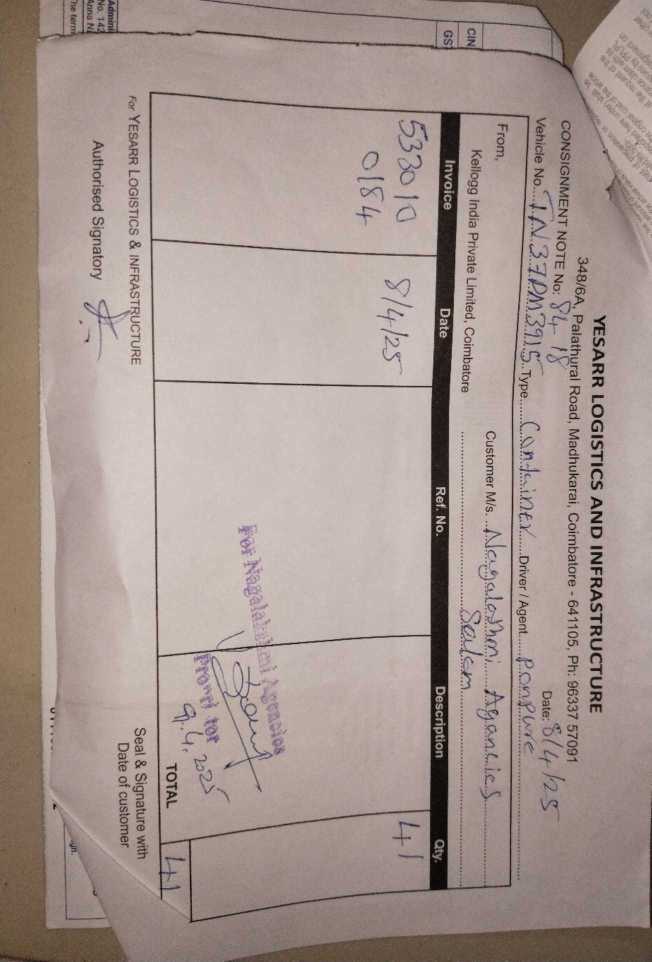 YESARR LOGISTICS AND INFRASTRUCTURE
348/6A, Palathurai Road, Madhukarai, Coimbatore - 641105, Ph: 96337 57091
CONSIGNMENT NOTE No: 84 18 Date: 8/4/25
Vehicle No. TN37DM3915 Type Container Driver / Agent Ponpure
From,
Kellogg India Private Limited, Coimbatore
Customer M/s. Nagaloxhmi Agancies
Salem
Invoice Date Ref. No. Description Qty.
533010 8/4/25 41
0184
For Nagalakshmi Agencies
9.4.2025
TOTAL 41
For YESARR LOGISTICS & INFRASTRUCTURE
Seal & Signature with
Date of customer
Authorised Signatory
CIN
GS
Admini
No. 142
Anna N
The term